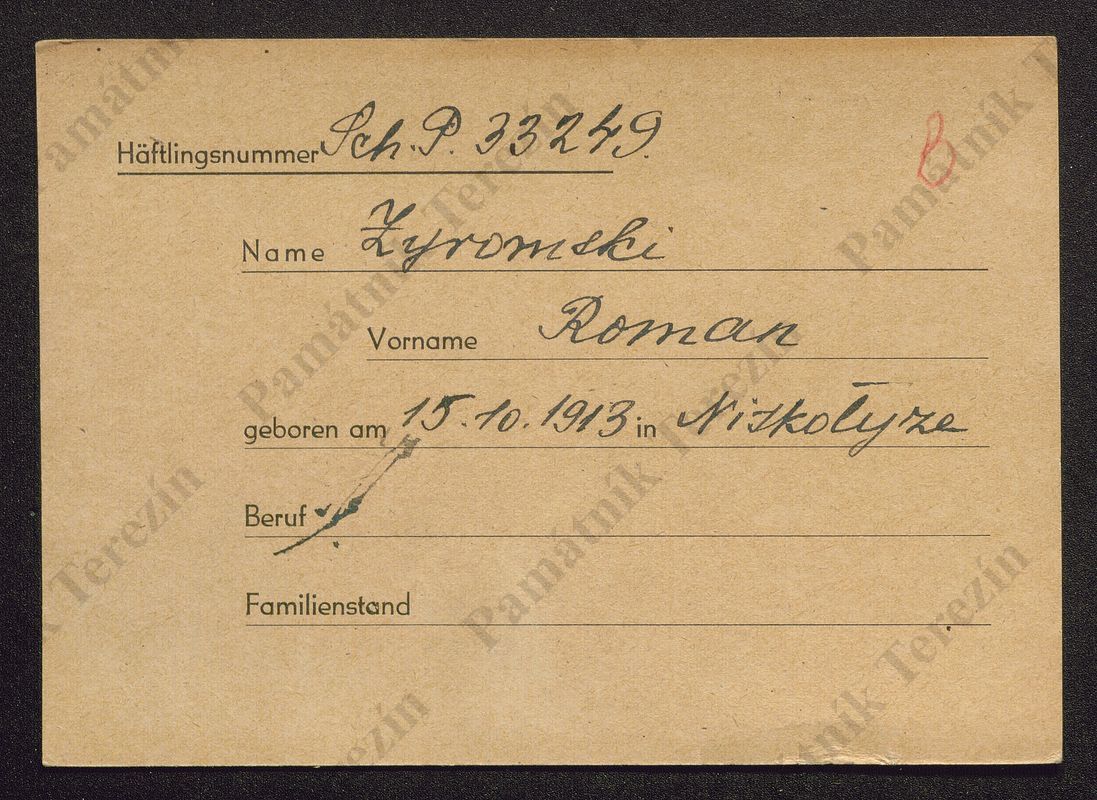 Häftlingsnummer Sch. P. 33249.
B
Name Zyromski
Vorname Roman
geboren am 15. 10. 1913 in Niskołyze
Beruf
Familienstand
Památník Terezín